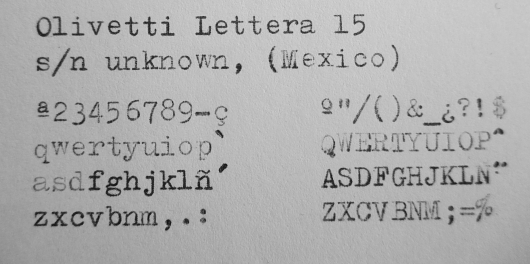 Olivetti Lettera 15
s/n unknown, (Mexico)
ª23456789-ç º"/()&_¿?!$
qwertyuiop` QWERTYUIOP^
asdfghjklñ´ ASDFGHJKLÑ¨
zxcvbnm,.: ZXCVBNM;=%